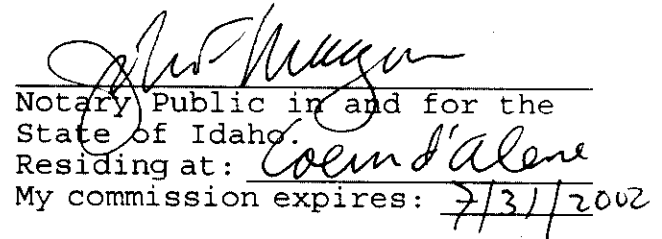 Notary Public in and for the
State of Idaho.
Residing at: Coeur d'Alene
My commission expires: 7/31/2002